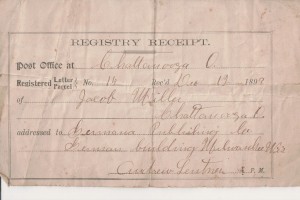 REGISTRY RECEIPT.
Post Office at Chattanooga O
Registered Letter Parcel No. 16 Rec'd Dec 12 1899
of Jacob Miller
Chattanooga O.
addressed to Germania Publishing Co
German building Milwaukee Wis
Andrew P. M.